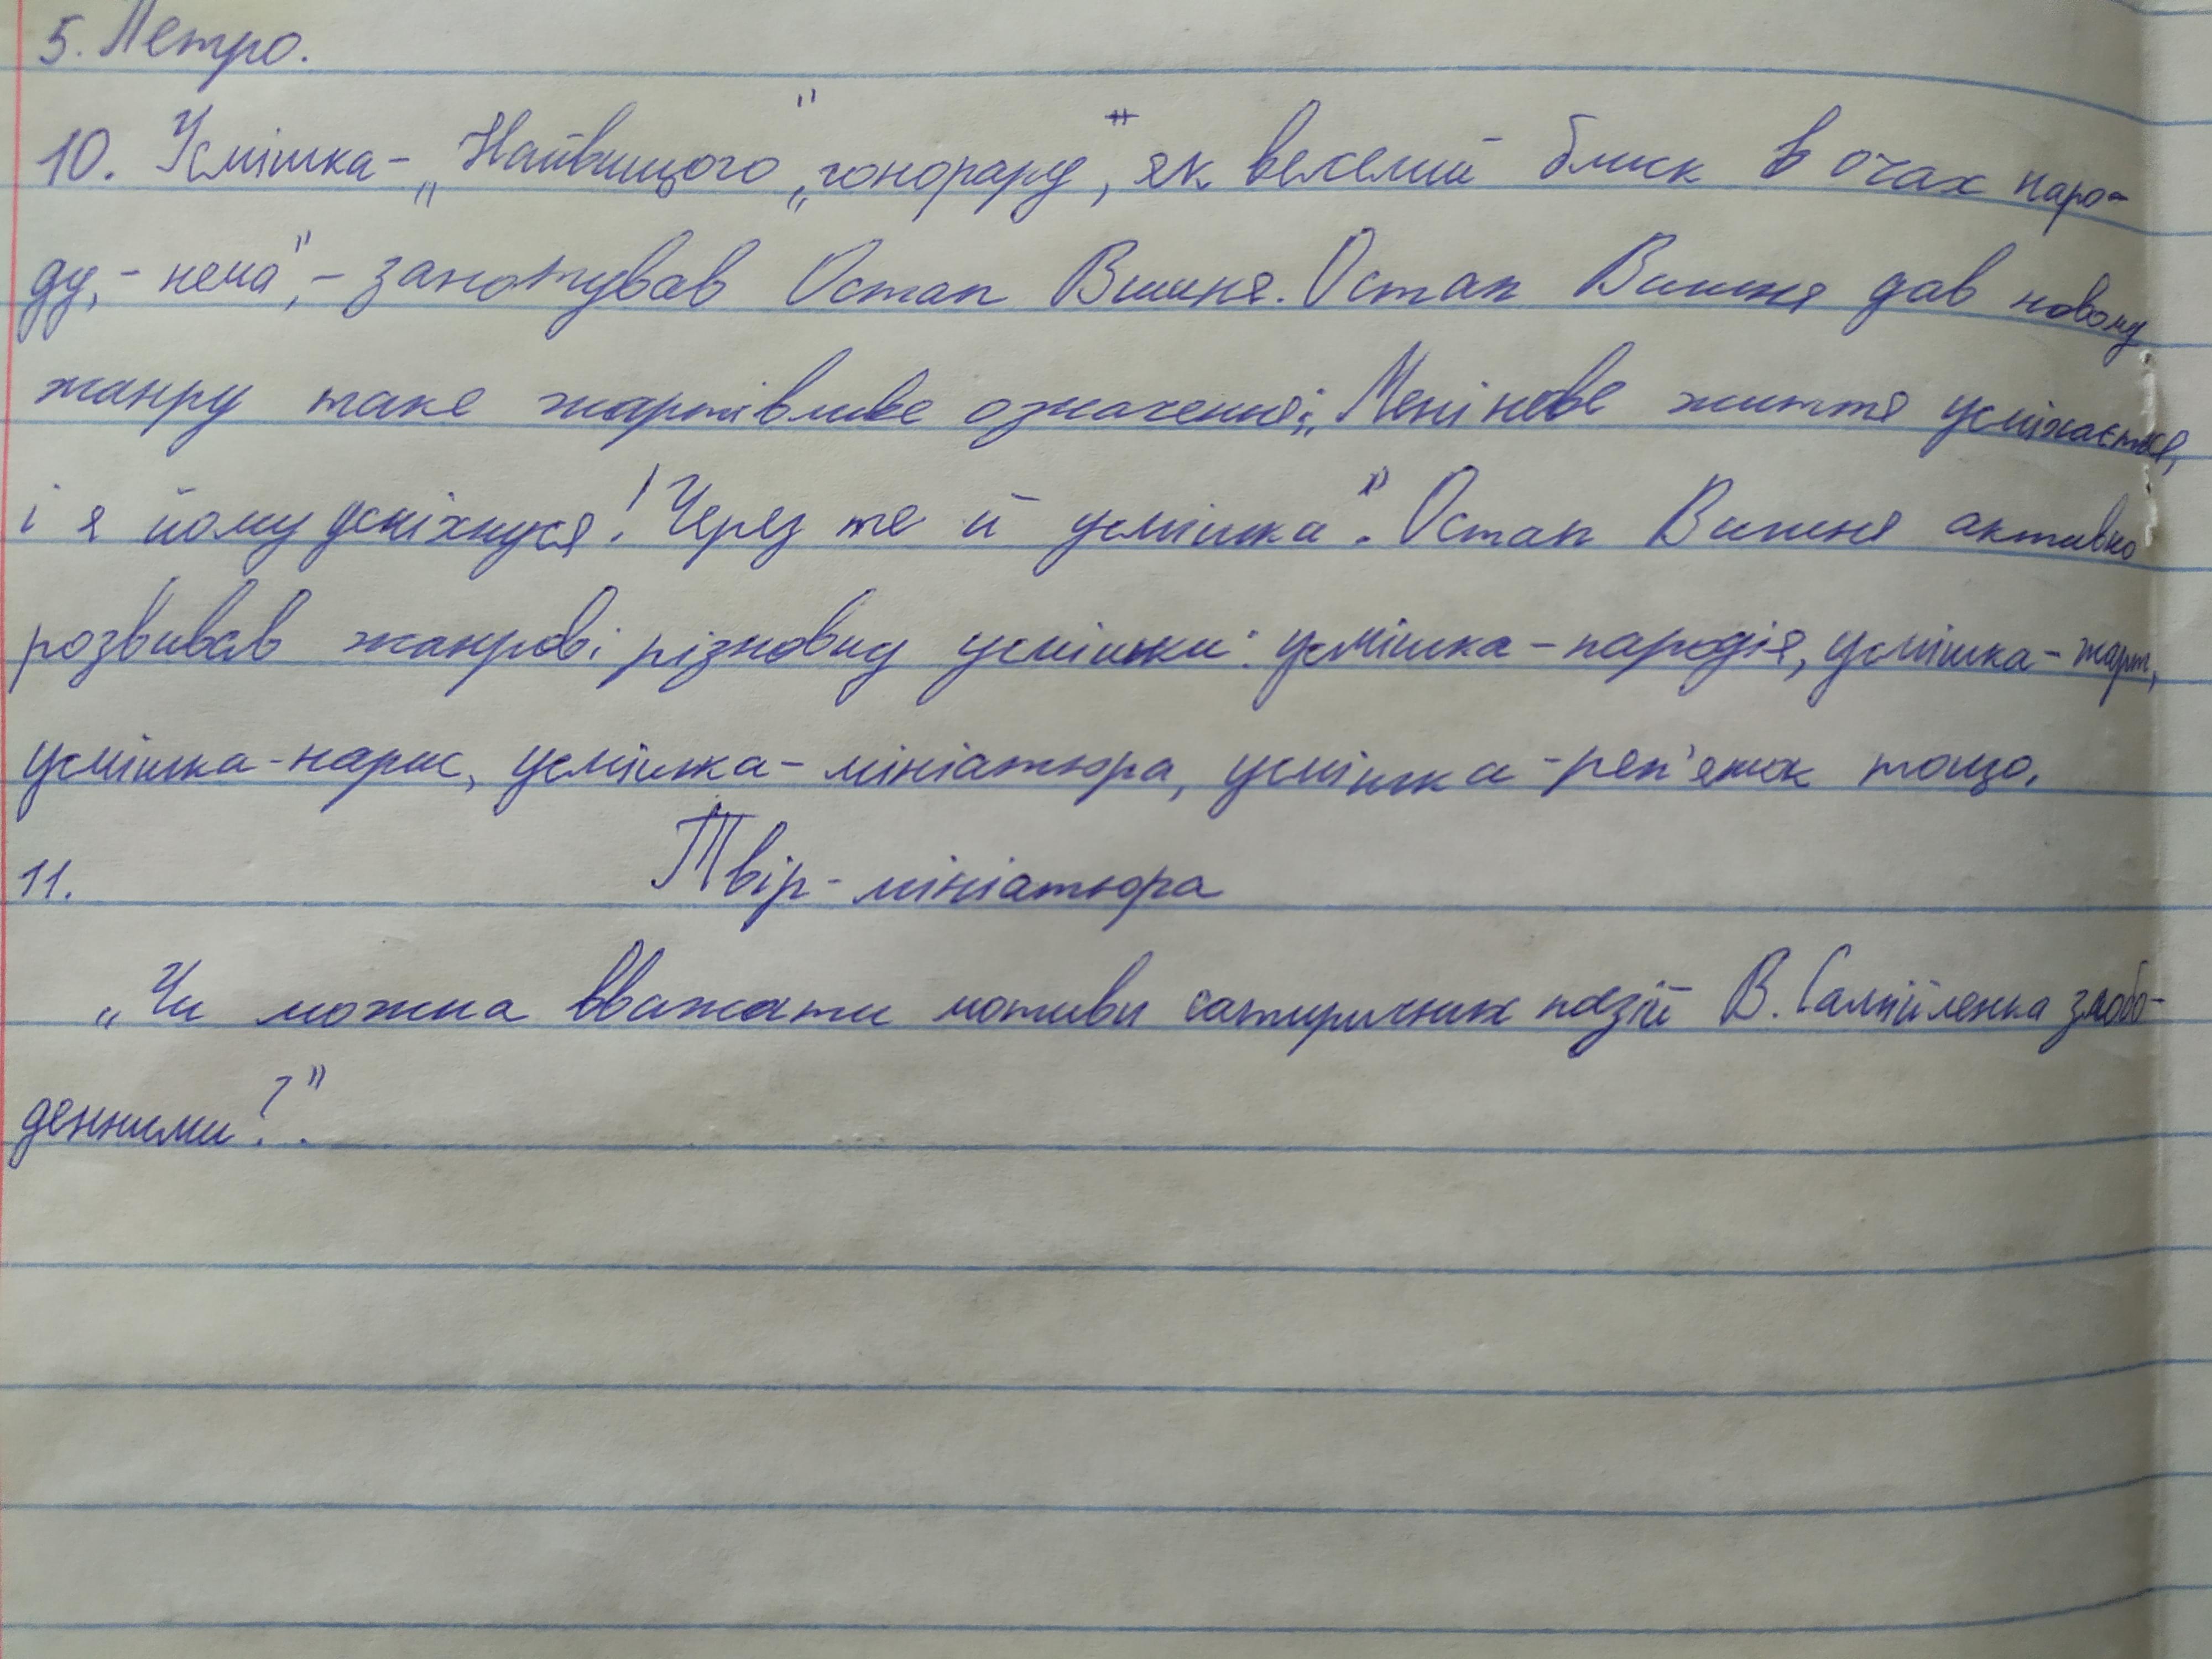 5. Петро.
10. Усмішка - „Найвищого" „гонорару, як веселий блиск в очах наро-
ду, - нема", - занотував Остап Вишня. Остап Вишня дав новому
жанру таке жартівливе означення: „Мені нове життя усміхається,
і я йому усміхнуся! Через те й усмішка". Остап Вишня активно
розвивав жанрові різновид усмішки: усмішка-пародія, усмішка-жарт,
усмішка-нарис, усмішка-мініатюра, усмішка-реп'яжок тощо.
11. Твір-мініатюра
„Чи можна вважати мотиви сатиричних поезій В. Самійленка злобо-
денними?".